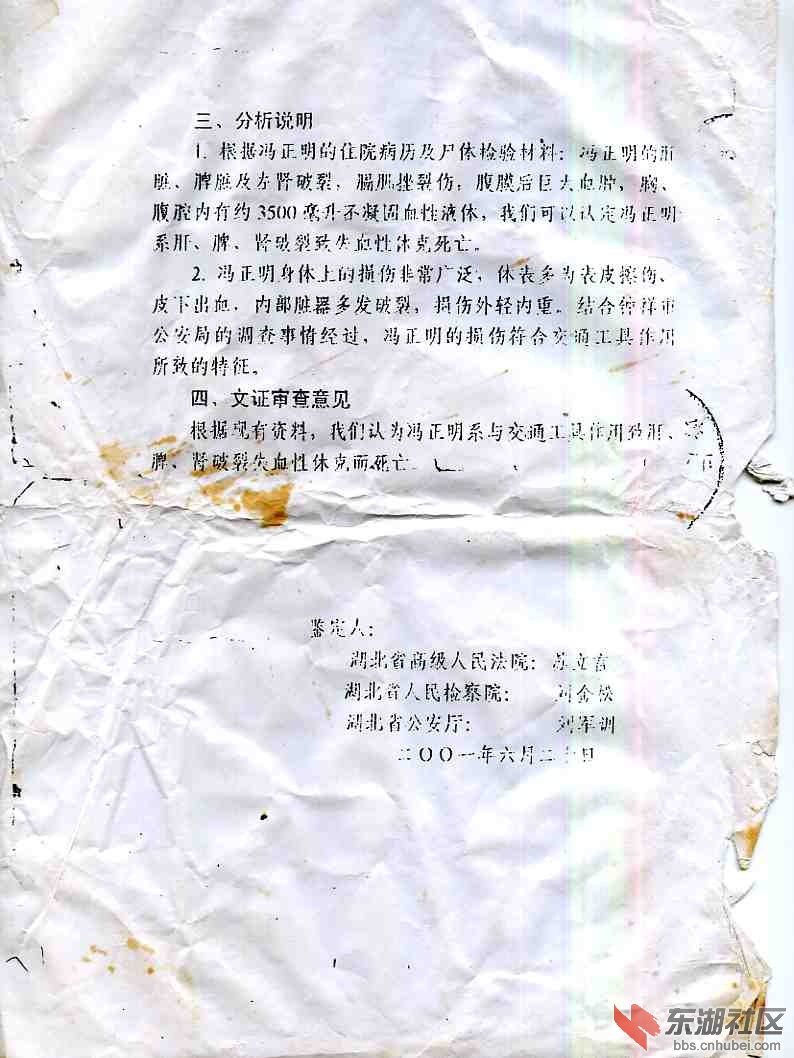 三、分析说明
1. 根据冯正明的住院病历及尸体检验材料：冯正明的肝
脏、脾脏及左肾破裂，肠肌挫裂伤，腹膜后巨大血肿，胸、
腹腔内有约3500毫升不凝固血性液体，我们可以认定冯正明
系肝、脾、肾破裂致失血性休克死亡。
2. 冯正明身体上的损伤非常广泛，体表多为表皮擦伤、
皮下出血，内部脏器多发破裂，损伤外轻内重。结合钟祥市
公安局的调查事情经过，冯正明的损伤符合交通工具作用
所致的特征。
四、文证审查意见
根据现有资料，我们认为冯正明系与交通工具作用致肝、
脾、肾破裂失血性休克而死亡
鉴定人：
湖北省高级人民法院：苏立言
湖北省人民检察院：刘金松
湖北省公安厅：刘军训
二〇〇一年六月二十日
东湖社区
bbs.cnhubei.com